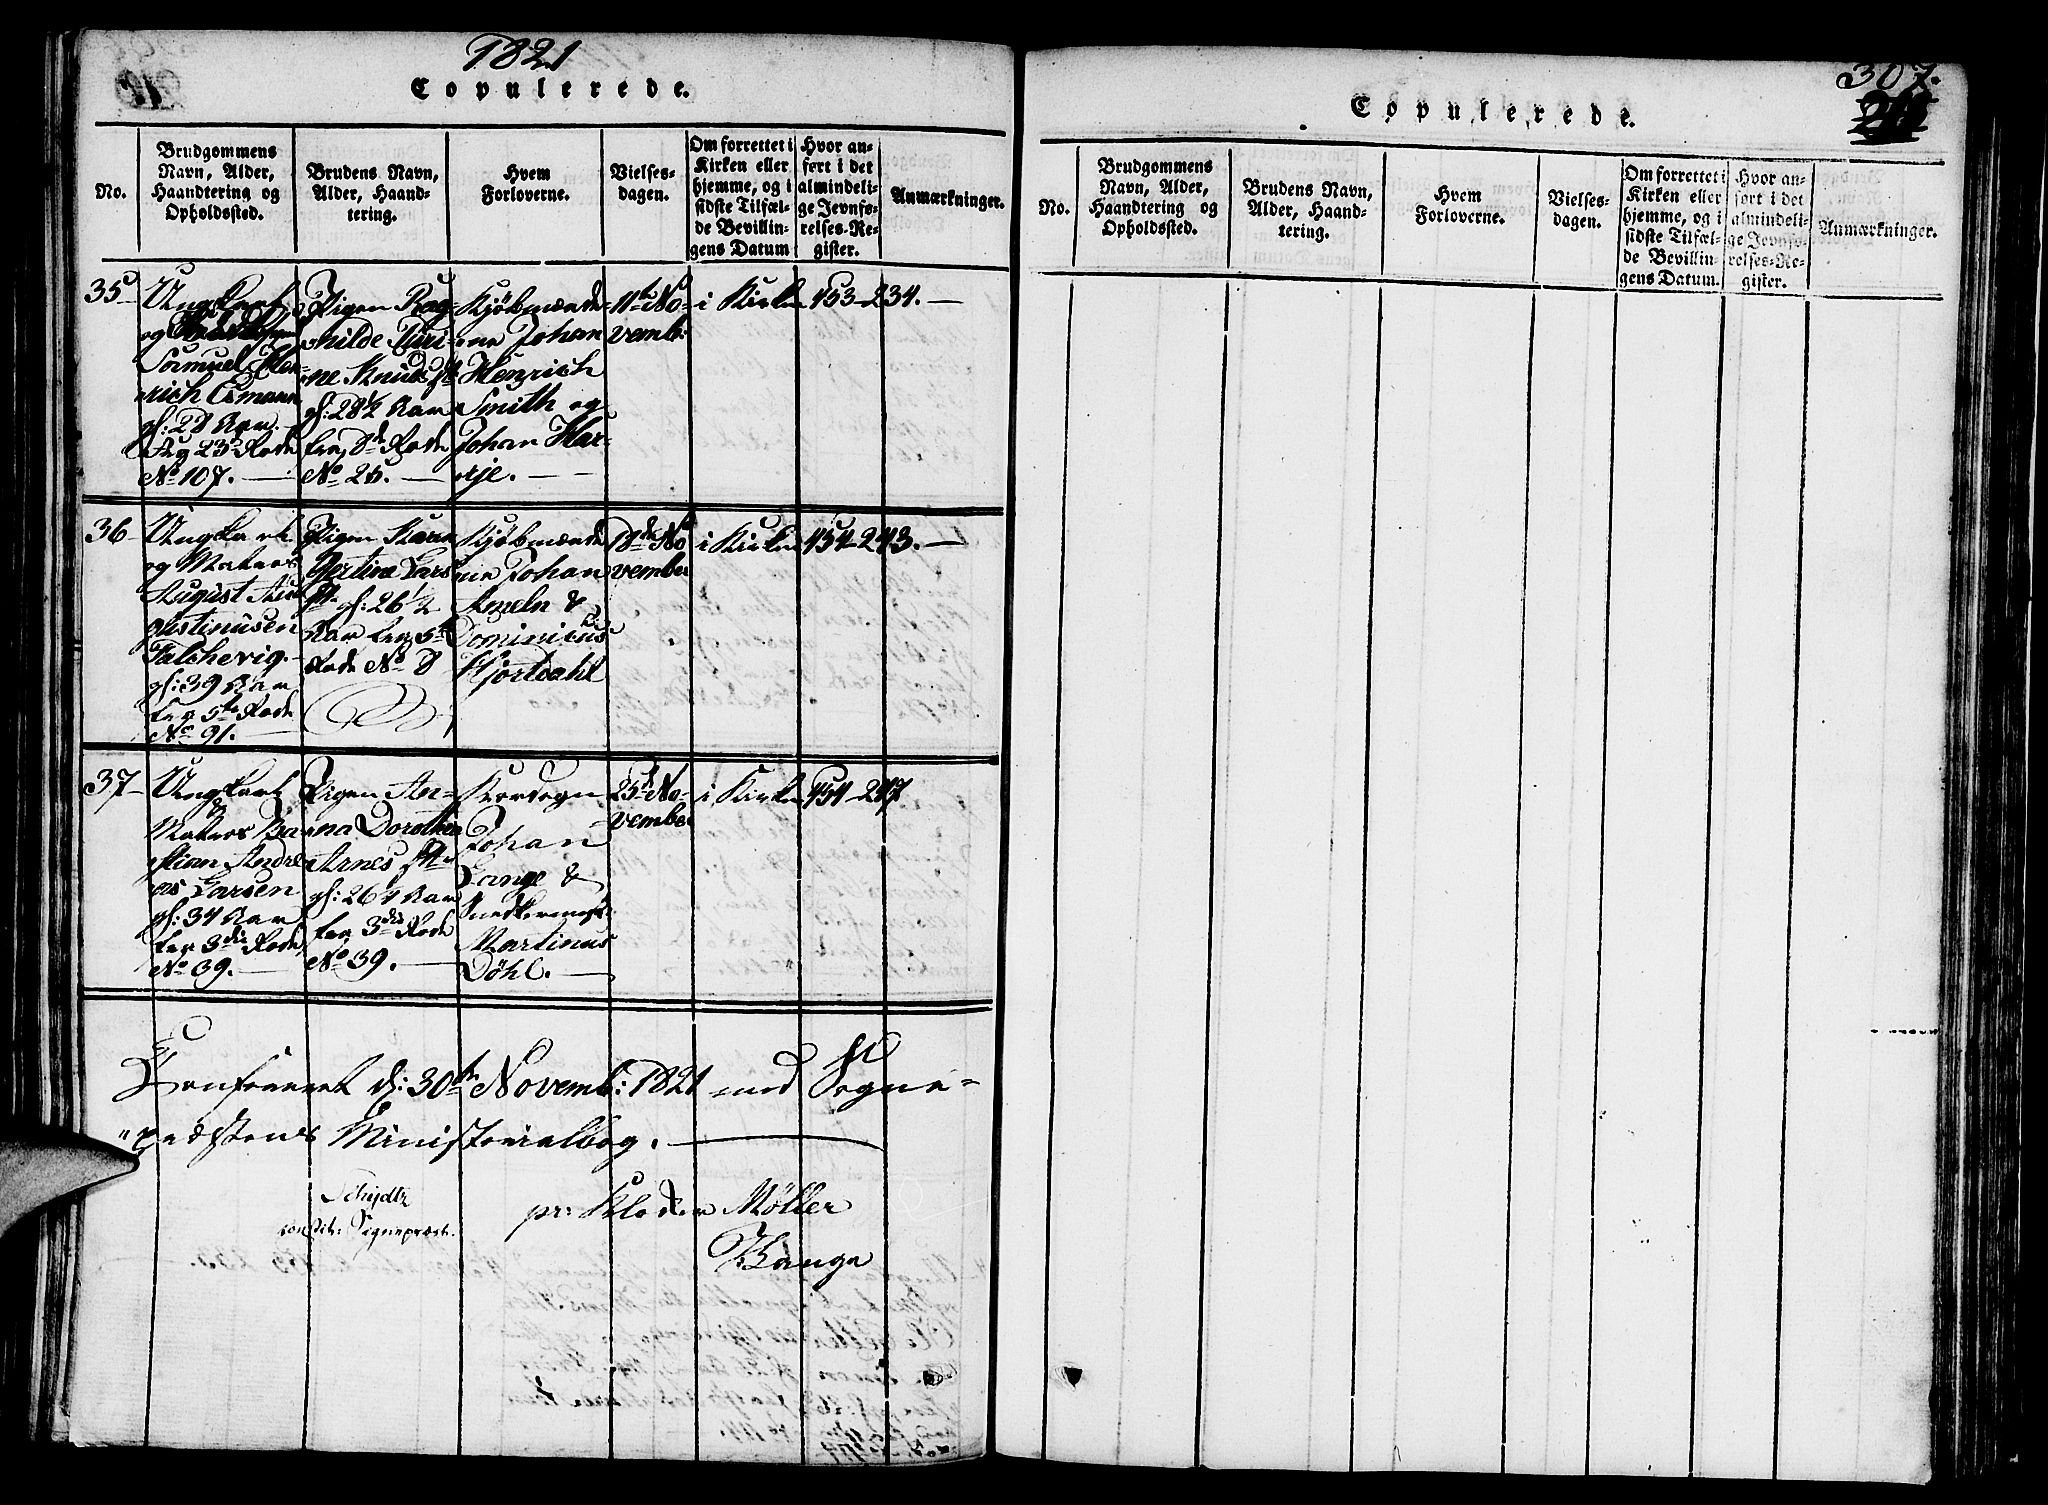 1821
Copulerede.
No.
Brudgommens
Navn, Alder,
Haandtering og
Opholdssted.
Brudens Navn,
Alder, Haand-
tering.
Hvem
Forloverne.
Vielses-
dagen.
Om forrettet i
Kirken eller
hjemme, og i
sidste Tilfæl-
de Bevillin-
gens Datum
Hvor an-
ført i det
almindeli-
ge Jevnfø-
relses-Re-
gister.
Anmærkninger.
35
Ungkarl
og
Samuel Hen-
rich Esmann
gl: 28 Aar.
23de Rode
No 107.
Pigen Rag-
nhilde Siri-
ne Knuds
gl: 28½ Aar
8de Rode
No 25.
Kjøbmænde-
ne Johan
Henrich
Smith og
Johan Har-
rje.
11te No-
vemb:
i Kirken
453-234.
36
Ungkarl
og Matros
August Au-
gustinusen
Falchevig.
gl: 39 Aar
5te Rode
No 91.
Pigen Karen
Gertine Lars
gl: 26½
Aar 5te
Rode No 8
Kjøbmænde
ne Johan
Ameln &
Dominicus
Hjortdahl
18de No
vember
i Kirken
454-243.
37
Ungkarl
&
Matros
stian Andre
as Larsen
gl: 34 Aar
3die Rode
No 39.
Pigen An-
na Dorothea
Arnes
gl: 26¼ Aar
3die Rode
No 39.
Kordegn
Johan
Lange &
Snedkermest:
Martinus
Döhl.
25de No-
vember
i Kirken
454-247
Confereret d: 30te Novemb: 1821 med Sogne-
præstens Ministerialbog.
Schydtz
constit: Sognepræst.
pr: Klokker Möller
Lange
307.
Copulerede.
No.
Brudgommens
Navn, Alder,
Haandtering og
Opholdssted.
Brudens Navn,
Alder, Haand-
tering.
Hvem
Forloverne.
Vielses-
dagen.
Om forrettet i
Kirken eller
hjemme, og i
sidste Tilfæl-
de Bevillin-
gens Datum.
Hvor an-
ført i det
almindeli-
ge Jevnfø-
relses-Re-
gister.
Anmærkninger.